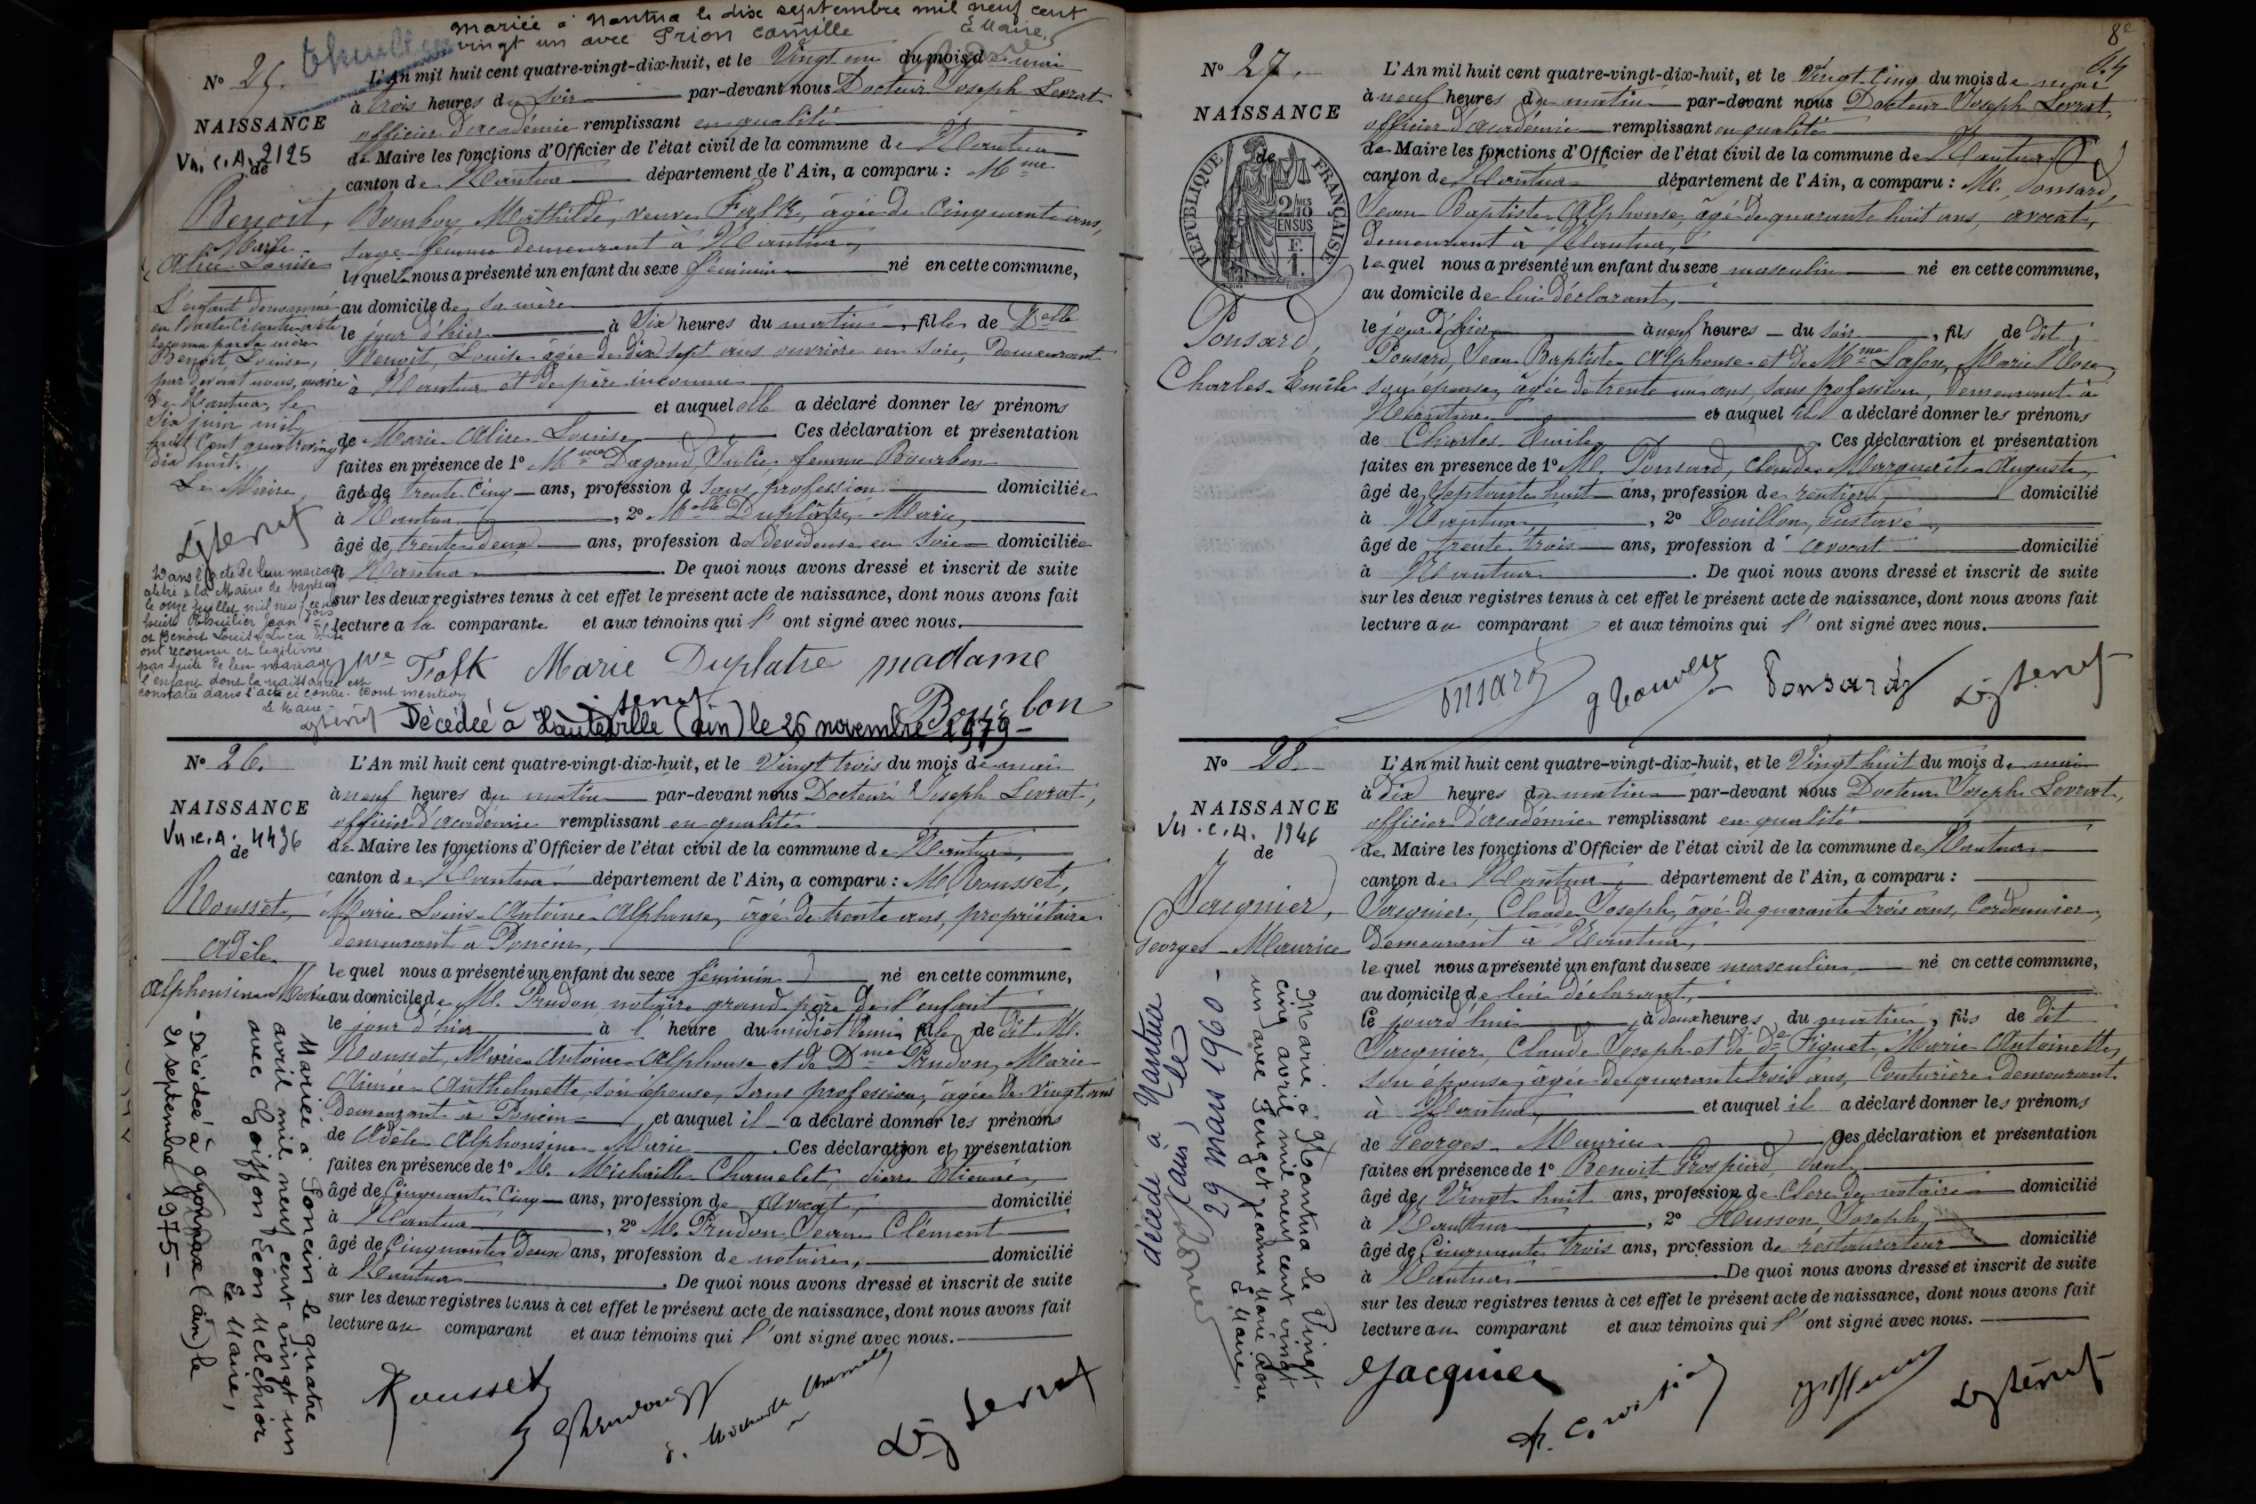 mariée à Nantua le dix septembre mil neuf cent
vingt un avec Prion Camille
Le Maire,
N° 25.
NAISSANCE
Vu. C.A. 2125
de
Benoit,
Marie
Alice Louise
L'enfant dénommé
en l'acte ci contre a été
reconnu par sa mère
Benoit, Louise,
par devant nous, maire
de Nantua, le
six juin mil
huit cent quatre vingt
dix huit.
Le Maire,
Dans l'acte de leur mariage
célébré à la Mairie de Nantua
le onze juillet mil neuf cent
Jean
et Benoit Louise
ont reconnu et légitimé
par suite de leur mariage
l'enfant dont la naissance est
constatée dans l'acte ci contre. Dont mention
Le Maire
L'An mil huit cent quatre-vingt-dix-huit, et le Vingt un du mois de mai
à trois heures du soir par-devant nous Docteur Joseph Levrat
officier d'académie remplissant en qualité
de Maire les fonctions d'Officier de l'état civil de la commune de Nantua
canton de Nantua département de l'Ain, a comparu : Mme
Mathilde, veuve Falk, âgée de cinquante ans,
sage femme demeurant à Nantua,
laquelle nous a présenté un enfant du sexe féminin né en cette commune,
au domicile de sa mère
le jour d'hier à six heures du matin, fille de Delle
Benoit, Louise âgée de dix sept ans ouvrière en soie, demeurant
à Nantua et de père inconnu
et auquel elle a déclaré donner les prénoms
de Marie Alice Louise Ces déclaration et présentation
faites en présence de 1° Mme Dagand, Julie, femme Bourbon
âgée de trente cinq ans, profession d sans profession domiciliée
à Nantua, 2° Melle Duplâtre, Marie,
âgé de trente deux ans, profession de dévideuse en soie domiciliée
à Nantua. De quoi nous avons dressé et inscrit de suite
sur les deux registres tenus à cet effet le présent acte de naissance, dont nous avons fait
lecture a la comparante et aux témoins qui l'ont signé avec nous.
Vve Falk Marie Duplatre madame
Bourbon
Décédée à Hauteville (ain) le 26 novembre 1979 -
N° 26.
NAISSANCE
Vu. C.A. 4436
de
Rousset,
Adèle
Alphonsine Marie
Mariée à Poncin le quatre
avril mil neuf cent vingt un
avec Goiffon Léon Melchior
Le Maire,
- Décédée à Oyonnax (ain) le
21 septembre 1975 -
L'An mil huit cent quatre-vingt-dix-huit, et le Vingt trois du mois de mai
à neuf heures du matin par-devant nous Docteur Joseph Levrat,
officier d'académie remplissant en qualité
de Maire les fonctions d'Officier de l'état civil de la commune de Nantua,
canton de Nantua département de l'Ain, a comparu : M. Rousset,
Marie Louis Antoine Alphonse, âgé de trente ans, propriétaire
demeurant à Poncin,
lequel nous a présenté un enfant du sexe féminin né en cette commune,
au domicile de M. Prudon, notaire grand père de l'enfant
le jour d'hier à l'heure du midi et demi fille de dit M.
Rousset, Marie Antoine Alphonse et de Dme Prudon, Marie
Aimée Anthelmette, son épouse, sans profession, âgée de vingt ans
demeurant à Poncin et auquel il a déclaré donner les prénoms
de Adèle Alphonsine Marie. Ces déclaration et présentation
faites en présence de 1° M. Michaille Chamelet, Pierre Etienne,
âgé de cinquante cinq ans, profession de avocat, domicilié
à Nantua, 2° M. Prudon, Jean Clément
âgé de cinquante deux ans, profession de notaire, domicilié
à Nantua. De quoi nous avons dressé et inscrit de suite
sur les deux registres tenus à cet effet le présent acte de naissance, dont nous avons fait
lecture au comparant et aux témoins qui l'ont signé avec nous.
Rousset
N° 27.
NAISSANCE
de
REPUBLIQUE FRANÇAISE
2/10 EN SUS
Ponsard,
Charles-Emile
L'An mil huit cent quatre-vingt-dix-huit, et le Vingt-cinq du mois de mai
à neuf heures du matin par-devant nous Docteur Joseph Levrat,
officier d'académie remplissant en qualité
de Maire les fonctions d'Officier de l'état civil de la commune de Nantua
canton de Nantua département de l'Ain, a comparu : M. Ponsard,
Jean Baptiste Alphonse, âgé de quarante huit ans, avocat,
demeurant à Nantua,
lequel nous a présenté un enfant du sexe masculin né en cette commune,
au domicile de lui déclarant,
le jour d'hier à neuf heures du soir, fils de dit,
Ponsard, Jean Baptiste Alphonse et de Mme Lafon, Marie Rose,
son épouse, âgée de trente un ans, sans profession, demeurant à
Nantua et auquel il a déclaré donner les prénoms
de Charles Emile. Ces déclaration et présentation
faites en présence de 1° M. Ponsard, Claude Marguerite Auguste,
âgé de septante huit ans, profession de rentier domicilié
à Nantua, 2° Gustave,
âgé de trente trois ans, profession d'avocat domicilié
à Nantua. De quoi nous avons dressé et inscrit de suite
sur les deux registres tenus à cet effet le présent acte de naissance, dont nous avons fait
lecture au comparant et aux témoins qui l'ont signé avec nous.
Ponsard
N° 28.
NAISSANCE
Vu. C.A. 1946
de
Jacquier,
Georges-Maurice
Marié à Nantua le Vingt
cinq avril mil neuf cent vingt
un avec Jeanne Marie Rose
Le Maire,
décédé à Nantua
(ain) le
29 mars 1960 -
L'An mil huit cent quatre-vingt-dix-huit, et le Vingt huit du mois de mai
à dix heures du matin par-devant nous Docteur Joseph Levrat,
officier d'académie remplissant en qualité
de Maire les fonctions d'Officier de l'état civil de la commune de Nantua
canton de Nantua département de l'Ain, a comparu :
Jacquier, Claude Joseph, âgé de quarante trois ans, cordonnier,
demeurant à Nantua,
lequel nous a présenté un enfant du sexe masculin, né en cette commune,
au domicile de lui déclarant,
le jourd'hui à deux heures du matin, fils de dit
Jacquier, Claude Joseph et de de Piquet, Marie Antoinette,
son épouse, âgée de quarante trois ans, couturière demeurant
à Nantua, et auquel il a déclaré donner les prénoms
de Georges-Maurice. Ces déclaration et présentation
faites en présence de 1° Benoit Grospierd,
âgé de Vingt huit ans, profession de clerc de notaire domicilié
à Nantua, 2° Husson, Joseph,
âgé de cinquante trois ans, profession de restaurateur domicilié
à Nantua. De quoi nous avons dressé et inscrit de suite
sur les deux registres tenus à cet effet le présent acte de naissance, dont nous avons fait
lecture au comparant et aux témoins qui l'ont signé avec nous.
Jacquier